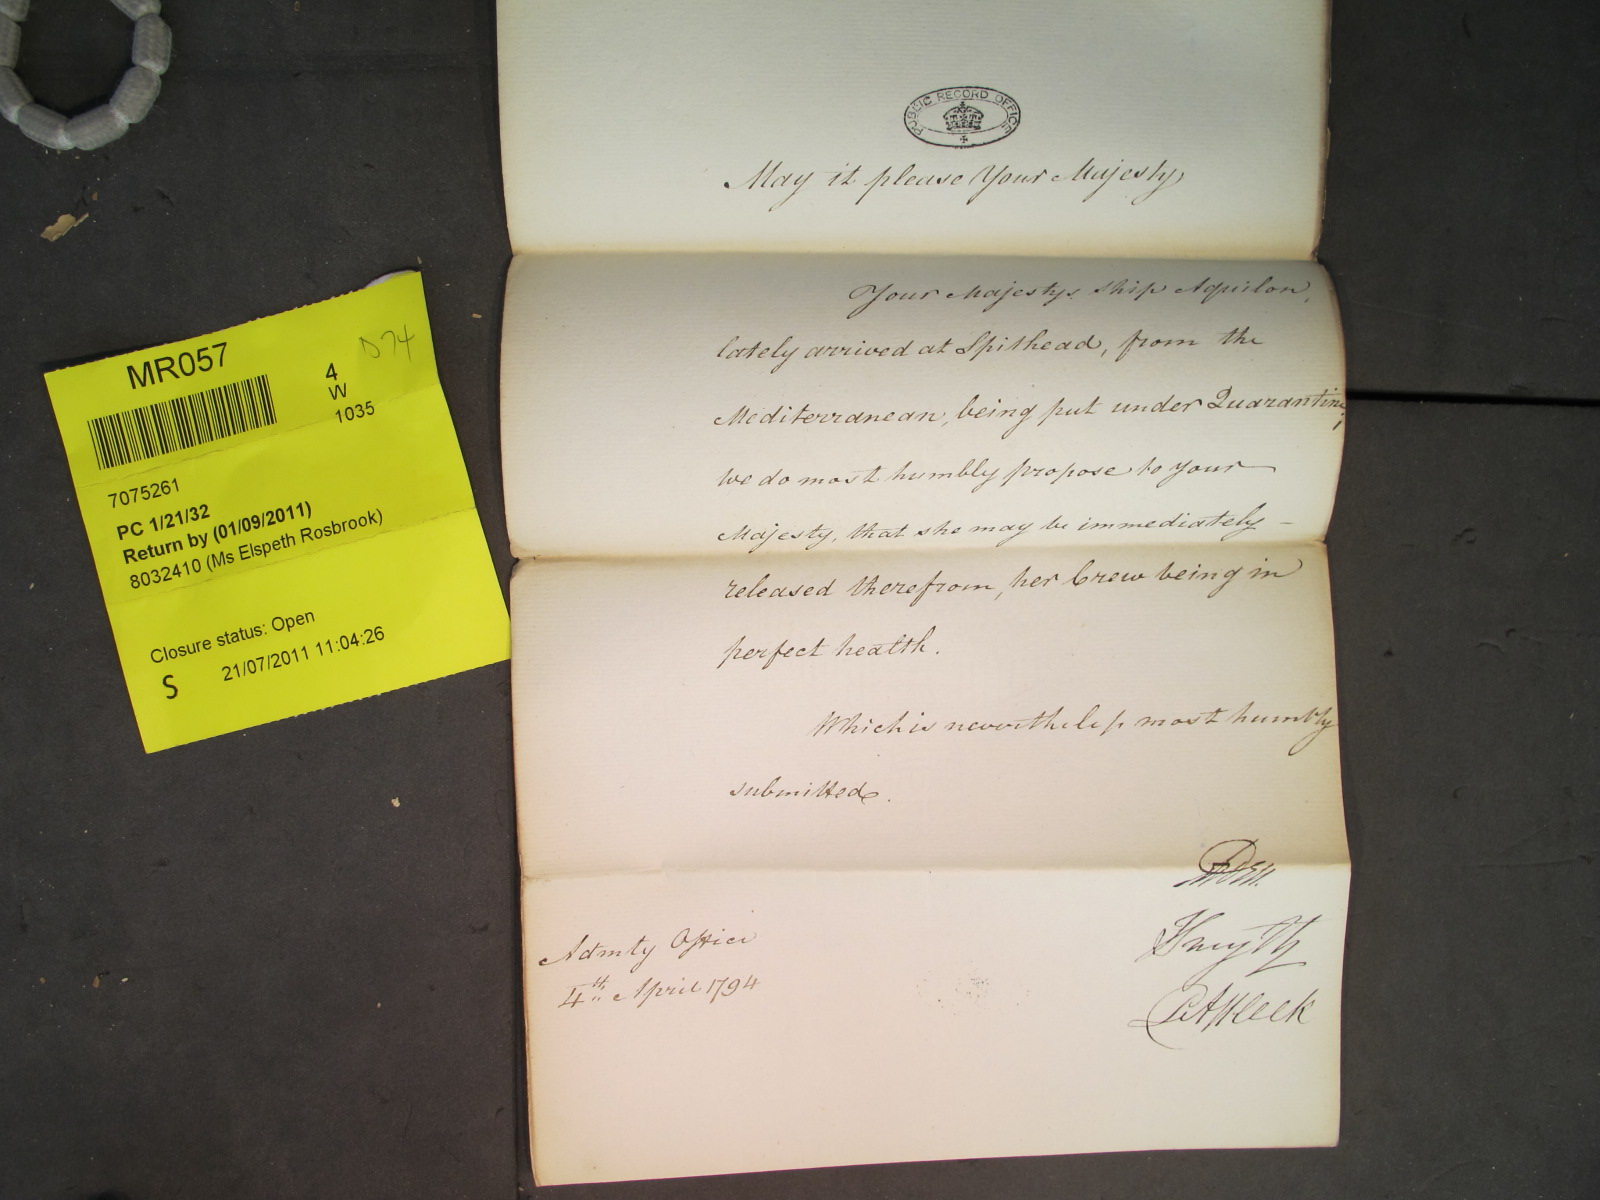 PUBLIC RECORD OFFICE
May it please Your Majesty,
Your Majestys ship Aquilon,
lately arrived at Spithead, from the
Mediterranean, being put under Quarantine;
we do most humbly propose to Your
Majesty, that she may be immediately -
released therefrom, her Crew being in
perfect health.
Which is nevertheless most humbly
submitted.
Arden.
PAffleck
Admty Office
4th April 1794
MR057
D74
4
W
1035
7075261
PC 1/21/32
Return by (01/09/2011)
8032410 (Ms Elspeth Rosbrook)
Closure status: Open
S 21/07/2011 11:04:26